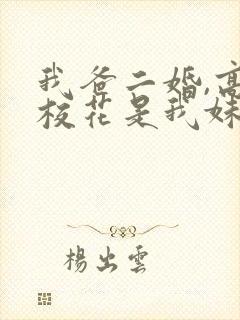 我爸二婚,高
校花是我妹
楊出雲